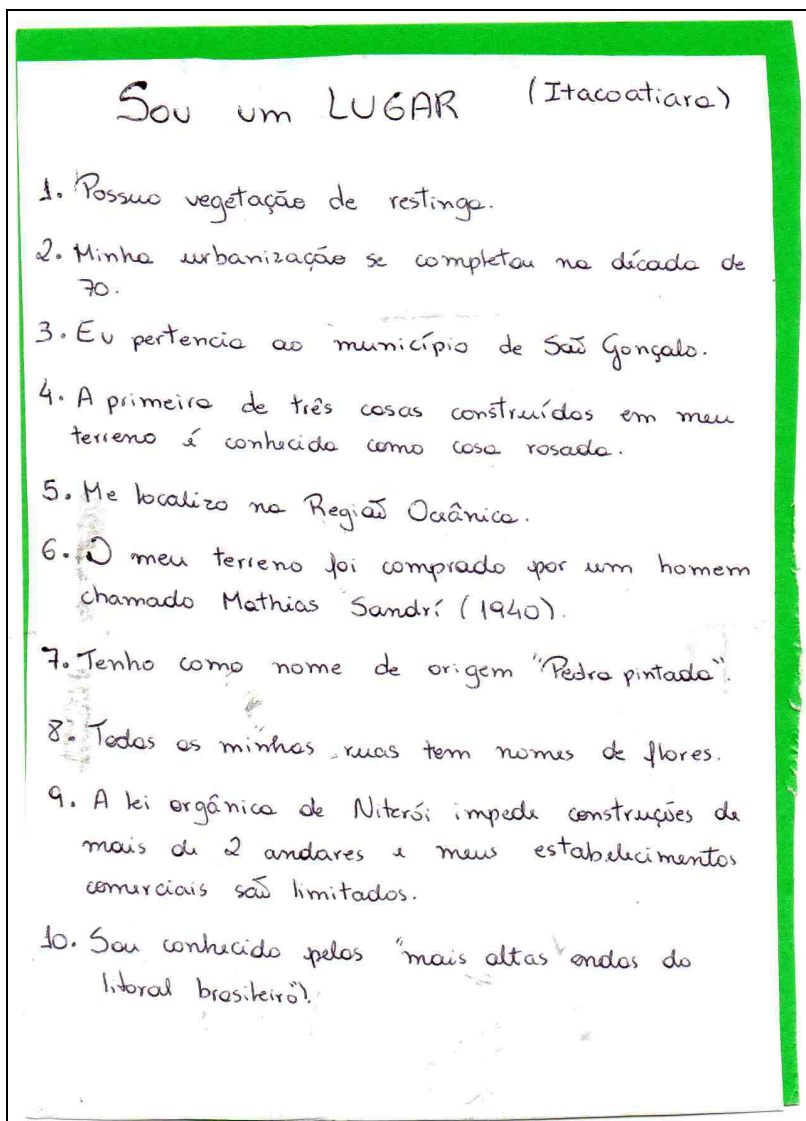 Sou um LUGAR (Itacoatiara)
1. Possuo vegetação de restinga.
2. Minha urbanização se completou na década de
70.
3. Eu pertencia ao município de São Gonçalo.
4. A primeira de três casas construídas em meu
terreno é conhecida como casa rosada.
5. Me localizo na Região Oceânica.
6. O meu terreno foi comprado por um homem
chamado Mathias Sandrí (1940).
7. Tenho como nome de origem "Pedra pintada".
8. Todas as minhas ruas tem nomes de flores.
9. A lei orgânica de Niterói impede construções de
mais de 2 andares e meus estabelecimentos
comerciais são limitados.
10. Sou conhecido pelas "mais altas ondas do
litoral brasileiro").